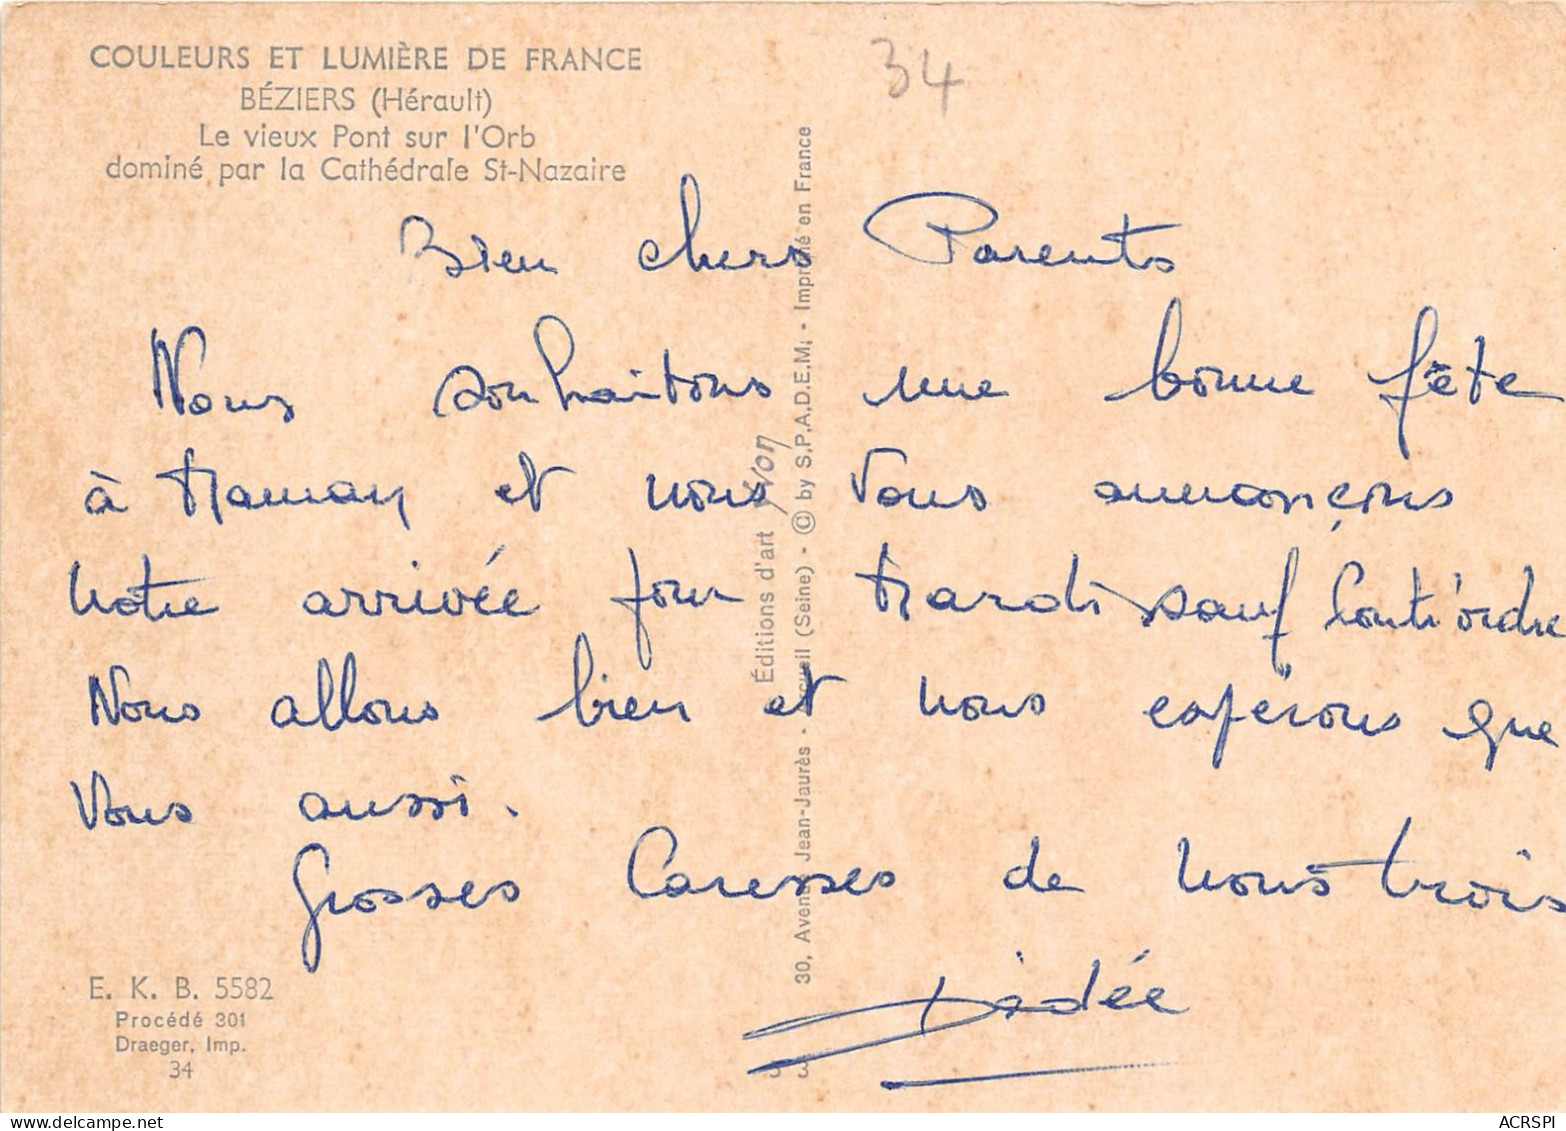 COULEURS ET LUMIÈRE DE FRANCE
BÉZIERS (Hérault)
Le vieux Pont sur l'Orb
dominé par la Cathédrale St-Nazaire
34
Bien chers Parents
Nous souhaitons une bonne fête
à Maman et nous vous annonçons
notre arrivée pour Mardi sauf Contr'ordre
Nous allons bien et nous espérons que
vous aussi.
Grosses Caresses de nous trois
Dédée
Éditions d'art YVON
30, Avenue Jean-Jaurès - cueil (Seine) - © by S.P.A.D.E.M. - Imprimé en France
E. K. B. 5582
Procédé 301
Draeger, Imp.
34
ACRSPI